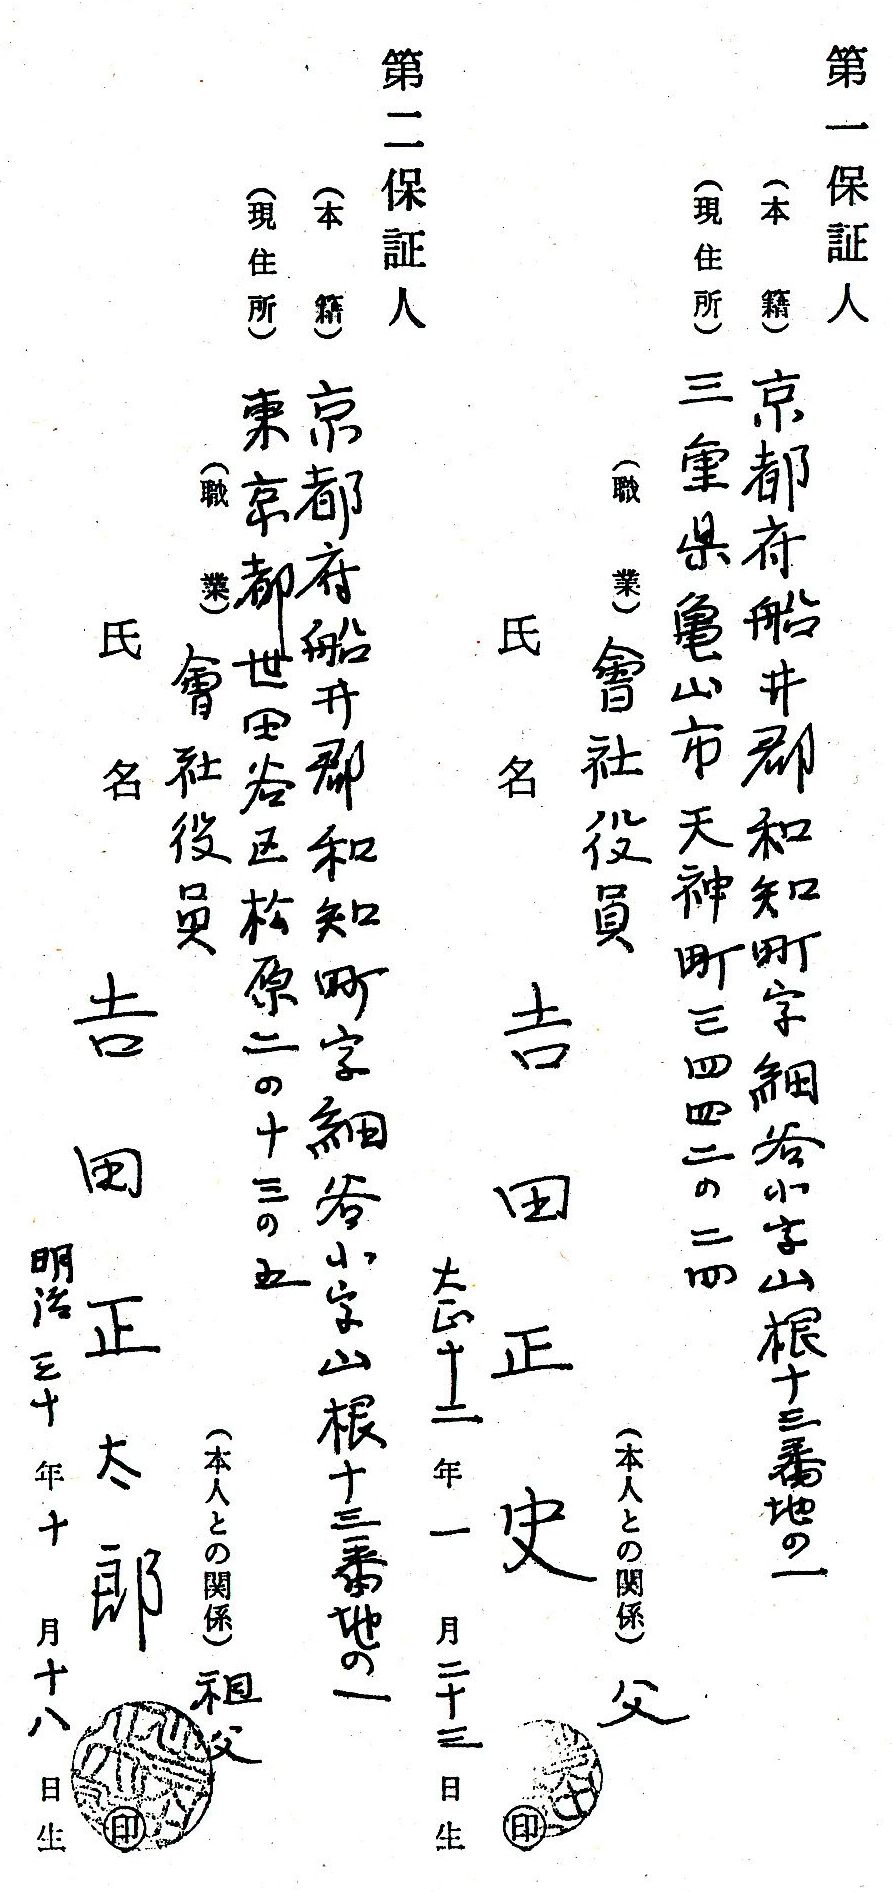 第一保証人
（本籍）京都府船井郡和知町字細谷小字山根十三番地の一
（現住所）三重県亀山市天神町三四四二の二四
（職業）會社役員
（本人との関係）父
氏名 吉田正史 印
大正十二年一月二十三日生
第二保証人
（本籍）京都府船井郡和知町字細谷小字山根十三番地の一
（現住所）東京都世田谷区松原二の十三の五
（職業）會社役員
（本人との関係）祖父
氏名 吉田正太郎 印
明治三十年十月十八日生